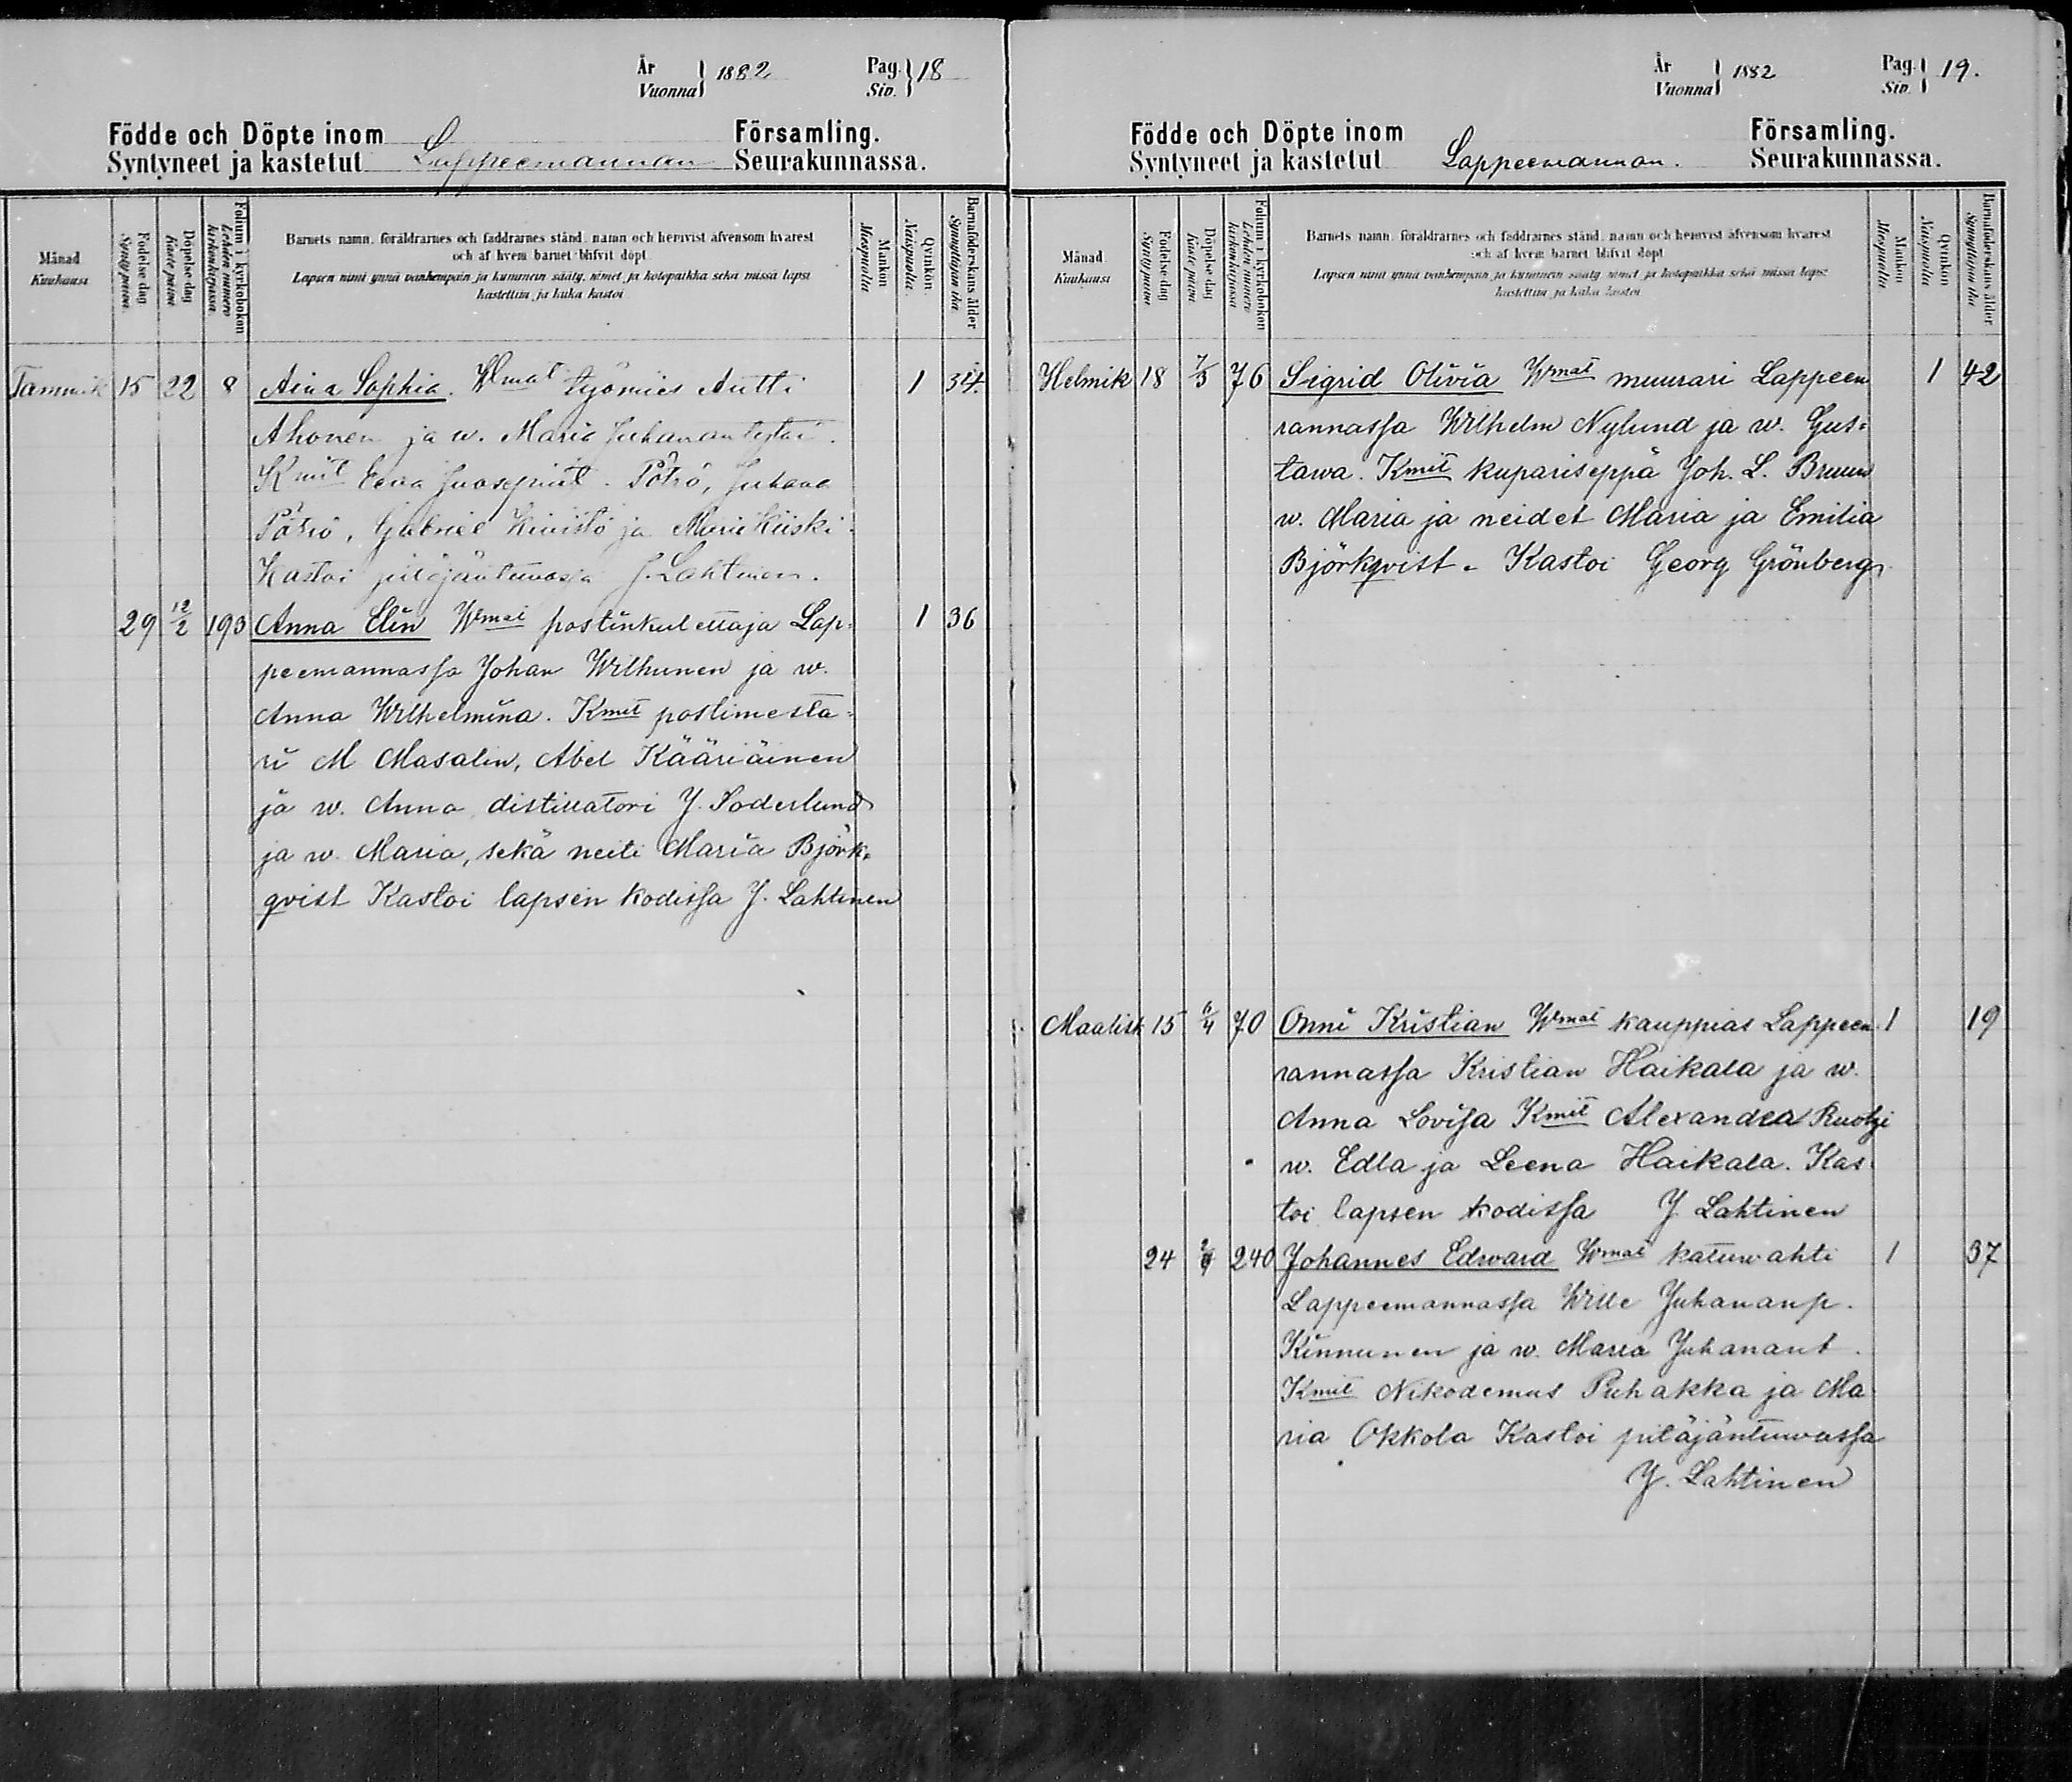 År Vuonna } 1882 Pag. Siv. } 18
Födde och Döpte inom Församling.
Syntyneet ja kastetut Lappeenrannan Seurakunnassa.
Månad
Kuukausi
Födelse dag
Synty päivä
Döpelse dag
Kaste päivä
Folium i kyrkoboken
Lehden numero
kirkonkirjassa
Barnets namn, föräldrarnes och faddrarnes stånd, namn och hemvist äfvensom hvarest
och af hvem barnet blifvit döpt
Lapsen nimi ynnä vanhempain ja kummein sääty, nimet ja kotopaikka sekä missä lapsi
kastettiin ja kuka kastoi
Mankön
Miespuolia
Qvinkön
Naispuolia
Barnaföderskans ålder
Synnyttäjän ikä
Tammik 15 22 8 Aina Sophia. Wmat työmies Antti 1 34.
Ahonen ja w. Maria Juhanantytär.
Kmit Eeva Juosepint. Pötrö, Juhana
Pötrö, Gabriel Kivistö ja Maria Kiiski.
Kastoi pitäjäntuvassa J. Lahtinen.
29 12/2 193 Anna Elin Wmat postinkulettaja Lap= 1 36
peenrannassa Johan Wilhunen ja w.
Anna Wilhelmina. Kmit postimesta=
ri M Masalin, Abel Kääriäinen
ja w. Anna, distillatori J. Söderlund
ja w. Maria, sekä neiti Maria Björk=
qvist Kastoi lapsen kodissa J. Lahtinen
År Vuonna } 1882 Pag. Siv. } 19.
Födde och Döpte inom Församling.
Syntyneet ja kastetut Lappeenrannan. Seurakunnassa.
Månad
Kuukausi
Födelse dag
Synty päivä
Döpelse dag
Kaste päivä
Folium i kyrkoboken
Lehden numero
kirkonkirjassa
Barnets namn, föräldrarnes och faddrarnes stånd, namn och hemvist äfvensom hvarest
och af hvem barnet blifvit döpt
Lapsen nimi ynnä vanhempain ja kummein sääty, nimet ja kotopaikka sekä missä lapsi
kastettiin ja kuka kastoi
Mankön
Miespuolia
Qvinkön
Naispuolia
Barnaföderskans ålder
Synnyttäjän ikä
Helmik 18 7/3 76 Sigrid Olivia Wmat muurari Lappeen 1 42
rannassa Wilhelm Nylund ja w. Gus=
tawa. Kmit kupariseppä Joh. L. Bruun
w. Maria ja neidet Maria ja Emilia
Björkqvist. Kastoi Georg Grönberg
Maalisk 15 6/4 70 Onni Kristian Wmat kauppias Lappeen 1 19
rannassa Kristian Haikala ja w.
Anna Lovisa Kmit Alexandra Ruotzi
w. Edla ja Leena Haikala. Kas
toi lapsen kodissa J. Lahtinen
24 2/4 240 Johannes Edward Wmat katuwahti 1 37
Lappeenrannassa Wille Juhananp.
Kinnunen ja w. Maria Juhanant.
Kmit Nikodemus Puhakka ja Ma
ria Okkola Kastoi pitäjäntuwassa
J. Lahtinen